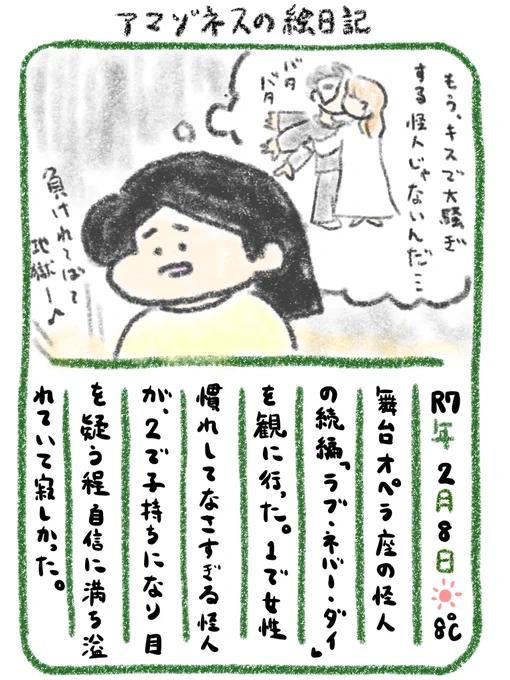 アマゾネスの絵日記
もう、キスで大騒ぎ
する怪人じゃないんだ…
バタ
バタ
負けれてばて
地獄ー♪
R7年2月8日 8℃
舞台オペラ座の怪人
の続編「ラブ・ネバー・ダイ」
を観に行った。1で女性
慣れしてなさすぎる怪人
が、2で子持ちになり目
を疑う程自信に満ち溢
れていて寂しかった。